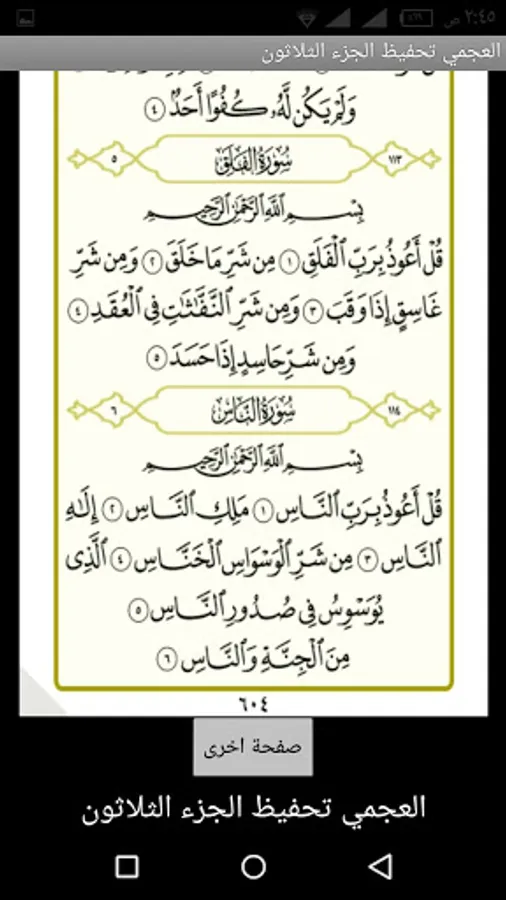 ٢:٤٥ ص
٨٦%
العجمي تحفيظ الجزء الثلاثون
وَلَمْ يَكُن لَّهُۥ كُفُوًا أَحَدٌۢ ٤
١١٣ سُورَةُ الفَلَقِ ٥
بِسْمِ اللَّهِ الرَّحْمَٰنِ الرَّحِيمِ
قُلْ أَعُوذُ بِرَبِّ الْفَلَقِ ١ مِن شَرِّ مَا خَلَقَ ٢ وَمِن شَرِّ
غَاسِقٍ إِذَا وَقَبَ ٣ وَمِن شَرِّ النَّفَّٰثَٰتِ فِى الْعُقَدِ ٤
وَمِن شَرِّ حَاسِدٍ إِذَا حَسَدَ ٥
١١٤ سُورَةُ النَّاسِ ٦
بِسْمِ اللَّهِ الرَّحْمَٰنِ الرَّحِيمِ
قُلْ أَعُوذُ بِرَبِّ النَّاسِ ١ مَلِكِ النَّاسِ ٢ إِلَٰهِ
النَّاسِ ٣ مِن شَرِّ الْوَسْوَاسِ الْخَنَّاسِ ٤ الَّذِى
يُوَسْوِسُ فِى صُدُورِ النَّاسِ ٥
مِنَ الْجِنَّةِ وَالنَّاسِ ٦
٦٠٤
صفحة اخرى
العجمي تحفيظ الجزء الثلاثون